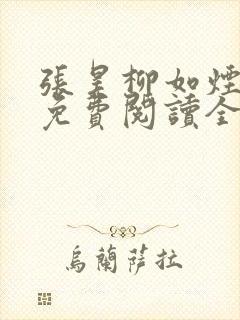 張昊柳如煙
免費閱讀全
烏蘭薩拉